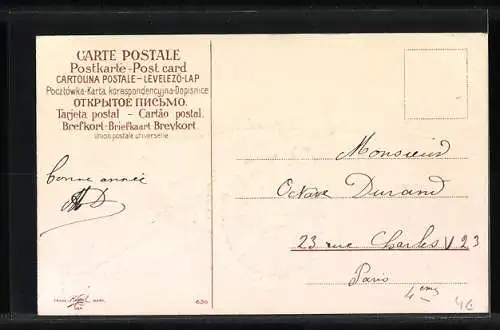 CARTE POSTALE
Postkarte-Post card
CARTOLINA POSTALE-LEVELEZŐ-LAP
Pocztówka-Karta korespondencyjna-Dopisnice
ОТКРЫТОЕ ПИСЬМО.
Tarjeta postal - Cartão postal.
Brefkort-Briefkaart Brevkort.
Union postale universelle
Bonne année
AD
Monsieur
Octave Durand
23 rue Charles V 23
Paris
4ème
TRADE MARK
630
4€